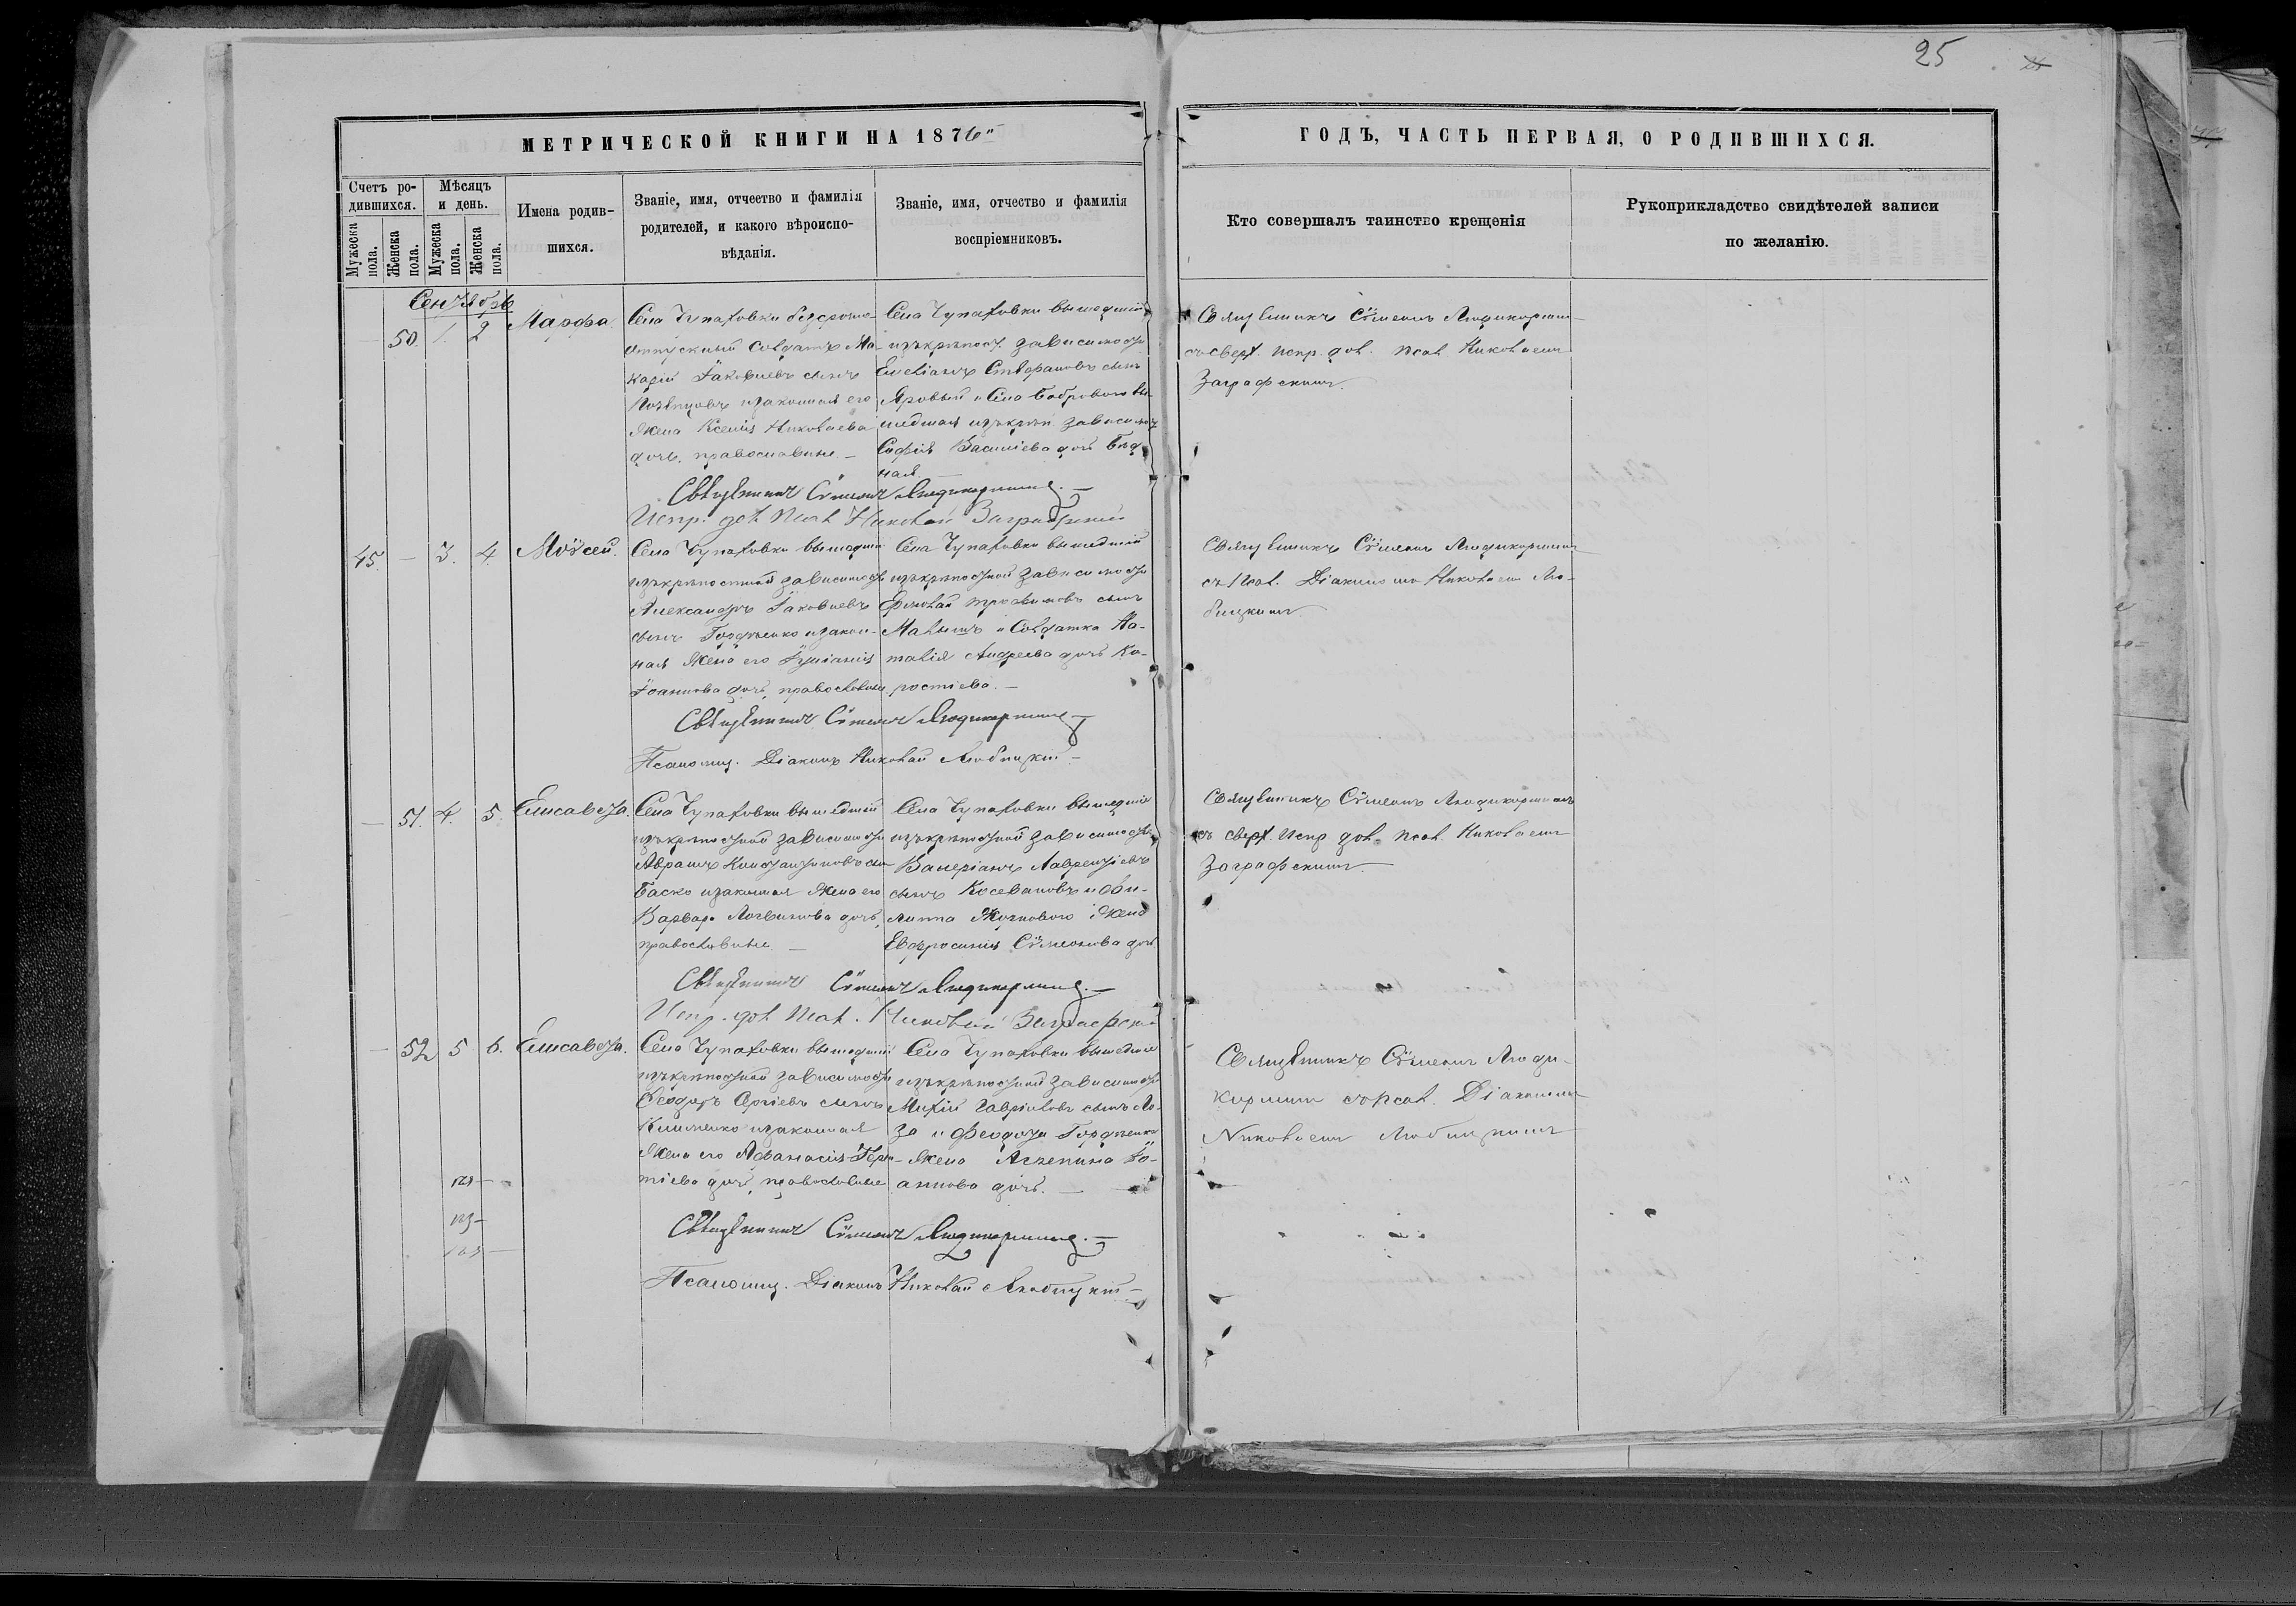 25
МЕТРИЧЕСКОЙ КНИГИ НА 1876
ГОДЪ, ЧАСТЬ ПЕРВАЯ, О РОДИВШИХСЯ.
Счетъ ро-
дившихся.
Мѣсяцъ
и день.
Мужеска
пола.
Женска
пола.
Мужеска
пола.
Женска
пола.
Имена родив-
шихся.
Званіе, имя, отчество и фамилія
родителей, и какого вѣроиспо-
вѣданія.
Званіе, имя, отчество и фамилія
воспріемниковъ.
Кто совершалъ таинство крещенія
Рукоприкладство свидѣтелей записи
по желанію.
Сентябрь
50. 1. 2 Марфа
Села Чупаховки безсрочно-
отпускный Солдатъ Ма-
карій Іаковлевъ сынъ
изаконная его
Жена Ксенія Николаева
дочь, православные —
Села Чупаховки вышедшій
изъкрѣпост. зависимости
Емеліанъ Стефановъ сынъ
Яровый и Села Боброваго вы-
шедшая изъкрѣп зависимост
Софія Василіева дочь Бѣд
ная —
Священникъ Сѵмеонъ
съ сверх. испр. дол. псал. Николаемъ
Заграфскимъ.
Священникъ Сѵмеонъ
Испр. дол. псал Николай Заграфскій
45. — 3. 4. Моѵсей.
Села Чупаховки вышедшій
изъкрѣпостной зависимости
Александръ Іаковлевъ
сынъ Гордѣенко изакон-
ная Жена его Іуліанія
Іоаннова дочь, православные
Села Чупаховки вышедшій
изъкрѣпостной зависимости
Ермолай Трофимовъ сынъ
Малышъ и Солдатка На-
талія Андреева дочь Ко-
ростіева. —
Священникъ Сѵмеонъ
съ Псал. Діакономъ Николаемъ Лю-
бицкимъ
Священникъ Сѵмеонъ
Псаломщ. Діаконъ Николай Любицкій —
— 51. 4. 5. Елисавета.
Села Чупаховки вышедшій
изъкрѣпостной зависимости
Аврамъ Константиновъ сы
Баско изаконная Жена его
Варвара Логвинова дочь,
православные —
Села Чупаховки вышедшіе
изъкрѣпостной зависимости
Валеріанъ Лаврентіевъ
сынъ Косевановъ и Фи-
липпа Жена
Евфросинія Сѵмеонова дочь
Священникъ Сѵмеонъ
съ сверх. Испр дол. псал. Николаемъ
Заграфскимъ
Священникъ Сѵмеонъ
Испр. дол псал. Николай Заграфскій
— 52 5 6. Елисавета.
Села Чупаховки вышедшій
изъкрѣпостной зависимости
Ѳеодоръ Сергіевъ сынъ
Клименко изаконная
Жена его Аѳанасія
дочь, православные
Села Чупаховки вышедшіе
изъкрѣпостной зависимости
Михій Гавріиловъ сынъ Ло-
за и Феодота Гордѣенка
Жена Агрепина Іо-
аннова дочь. —
Священникъ Сѵмеонъ
съпсал. Діакономъ
Николаемъ Любицкимъ
Священникъ Сѵмеонъ
Псаломщ. Діаконъ Николай Любицкій —